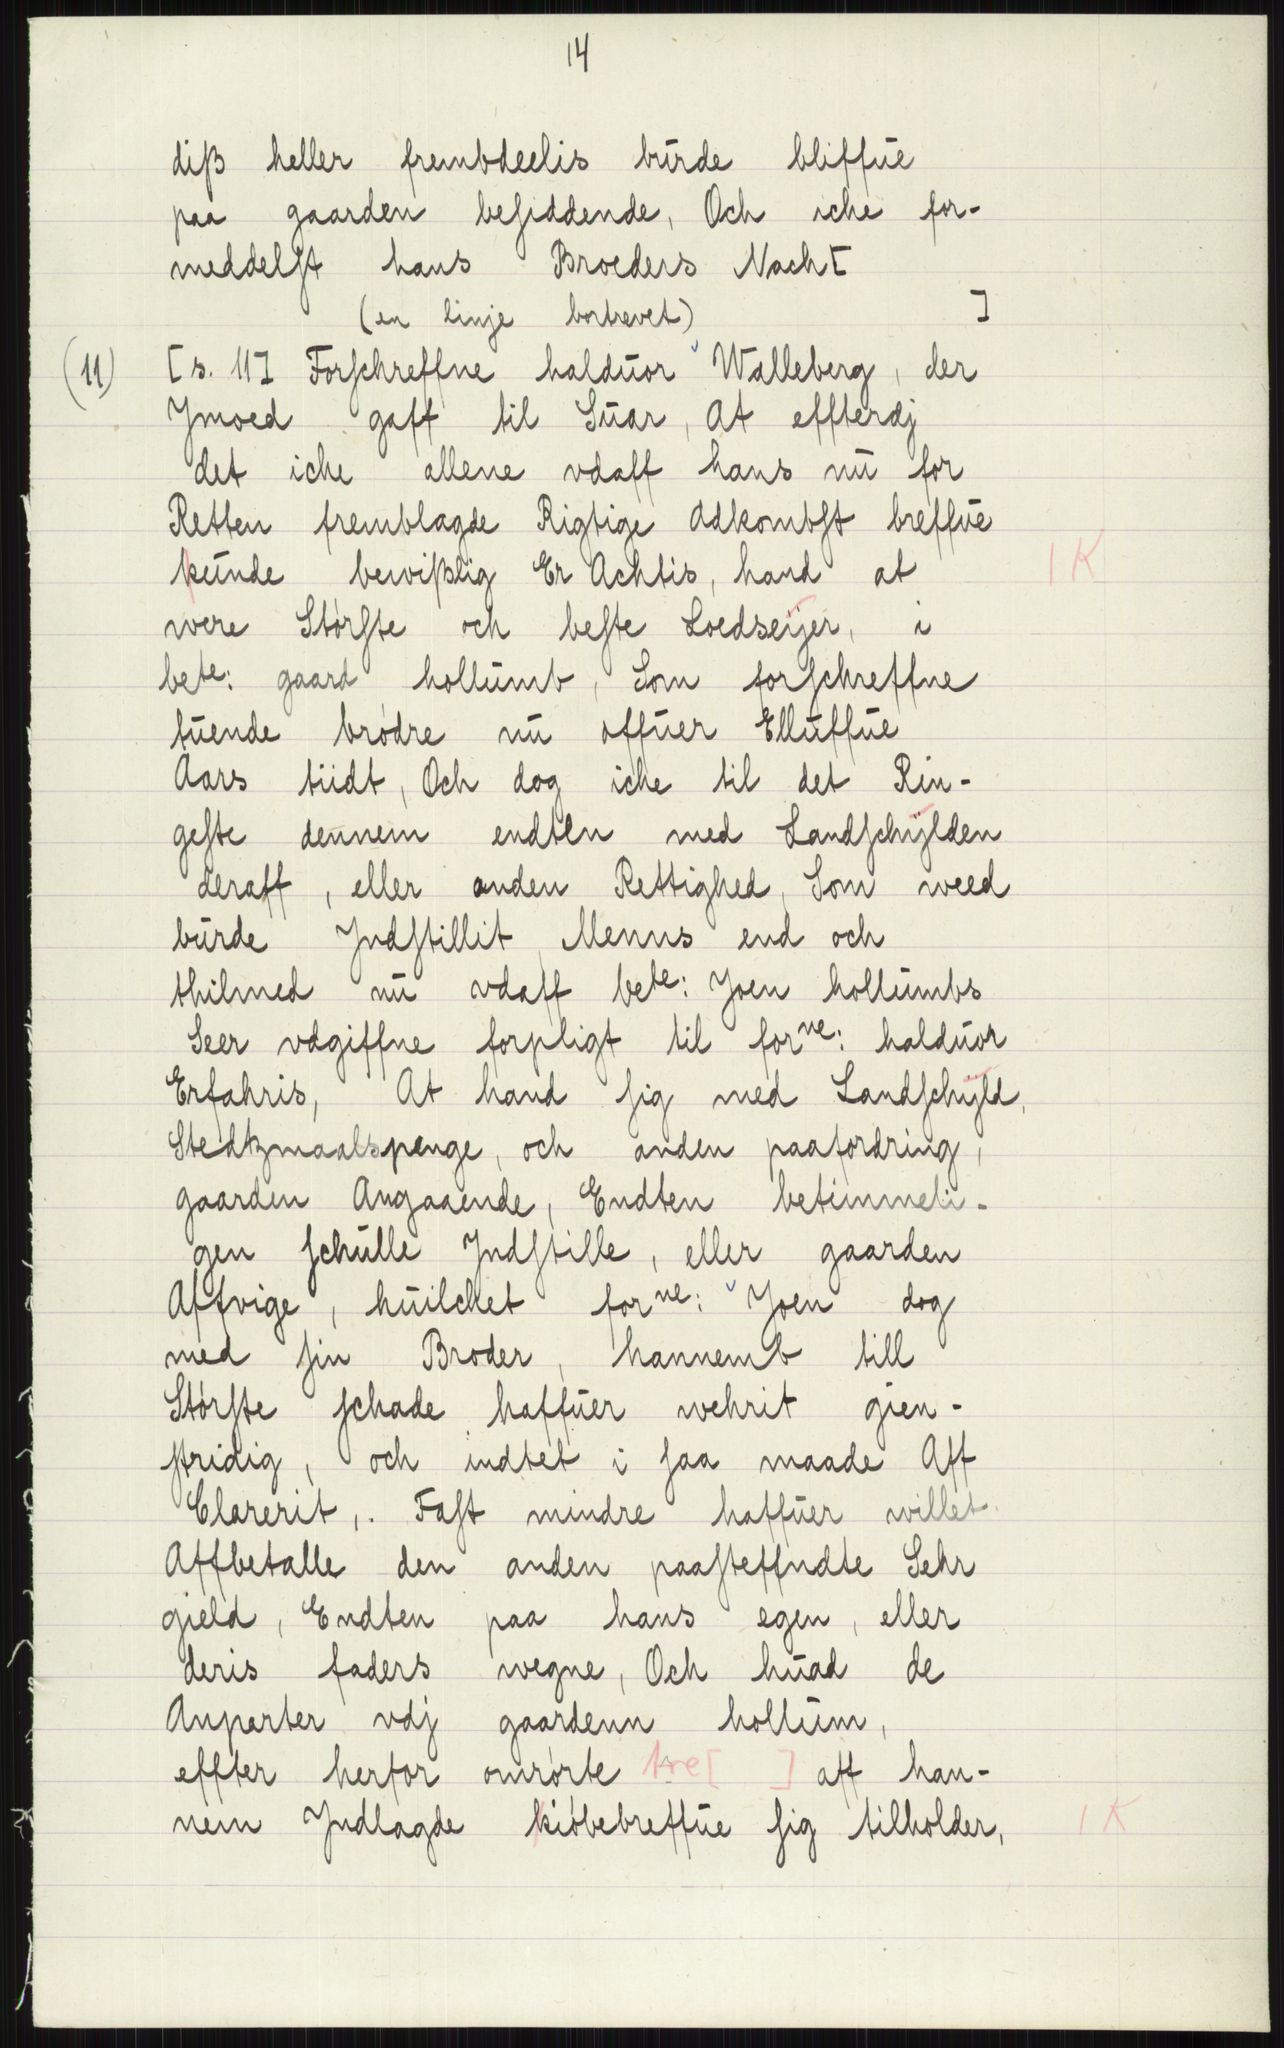 14
diß heller frembdeelis burde bliffue
paa gaarden besiddende, Och iche for-
meddelst hans Broeders Nach[
(en linje bortrevet) ]
(11) [s. 11] Forschreffne halduor Walleberg, der
Ymoed gaff til Suar, At effterdj
det iche allene vdaff hans nu for
Retten fremblagde Rigtige Adkombst breffue
kunde bewißlig Er Achtis, hand at 1 K
were Störste och beste Loedseÿer, i
bete: gaard hollumb, Som forschreffne
tuende brödre nu offuer Elluffue
Aars tiidt, Och dog iche til det Rin-
geste dennem endten med Landschÿlden
deraff, eller anden Rettighed, Som weed
burde Yndstillit, Menns end och
thilmed nu vdaff bete: Yoen hollumbs
Seer vdgiffne forpligt til forne: halduor
Erfahris, At hand sig med Landschÿld,
Stedtzmaalspenge, och anden paafordring,
gaarden Angaaende, Endten betimmeli-
gen schulle Yndstille, eller gaarden
Affvige, huilchet forne: Yoen dog
med sin Broder, hannemb till
Störste schade haffuer wehrit gien-
stridig, och indtet i saa maade Aff
Clarerit,. Fast mindre haffuer willet
Affbetalle den anden paasteffndte Sehr
gield, Endten paa hans egen, eller
deris faders wegne, Och huad de
Anparter vdj gaardenn hollum,
effter herfor omrörte tre[ ] aff han-
nem Yndlagde kiöbebreffue sig tilholder, 1 K